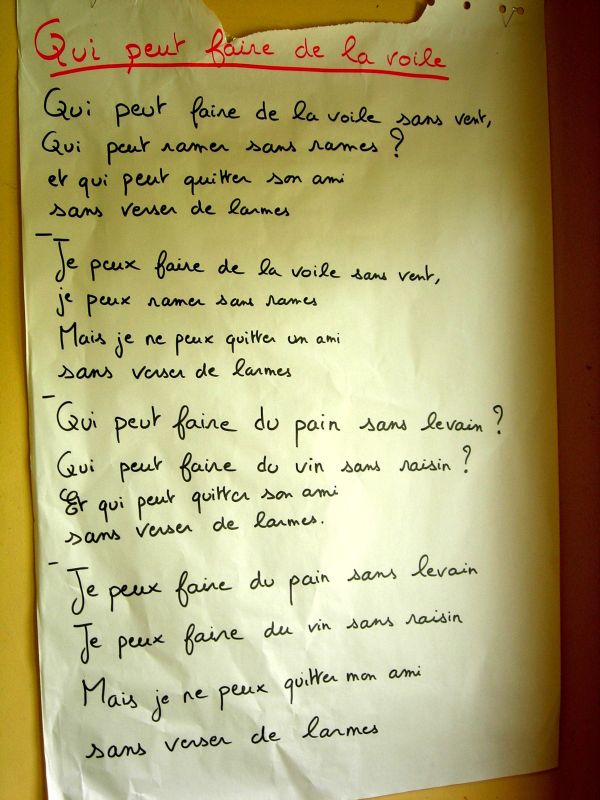 Qui peut faire de la voile
Qui peut faire de la voile sans vent,
Qui peut ramer sans rames ?
et qui peut quitter son ami
sans verser de larmes
- Je peux faire de la voile sans vent,
je peux ramer sans rames
Mais je ne peux quitter un ami
sans verser de larmes
- Qui peut faire du pain sans levain ?
Qui peut faire du vin sans raisin ?
Et qui peut quitter son ami
sans verser de larmes.
- Je peux faire du pain sans levain
Je peux faire du vin sans raisin
Mais je ne peux quitter mon ami
sans verser de larmes